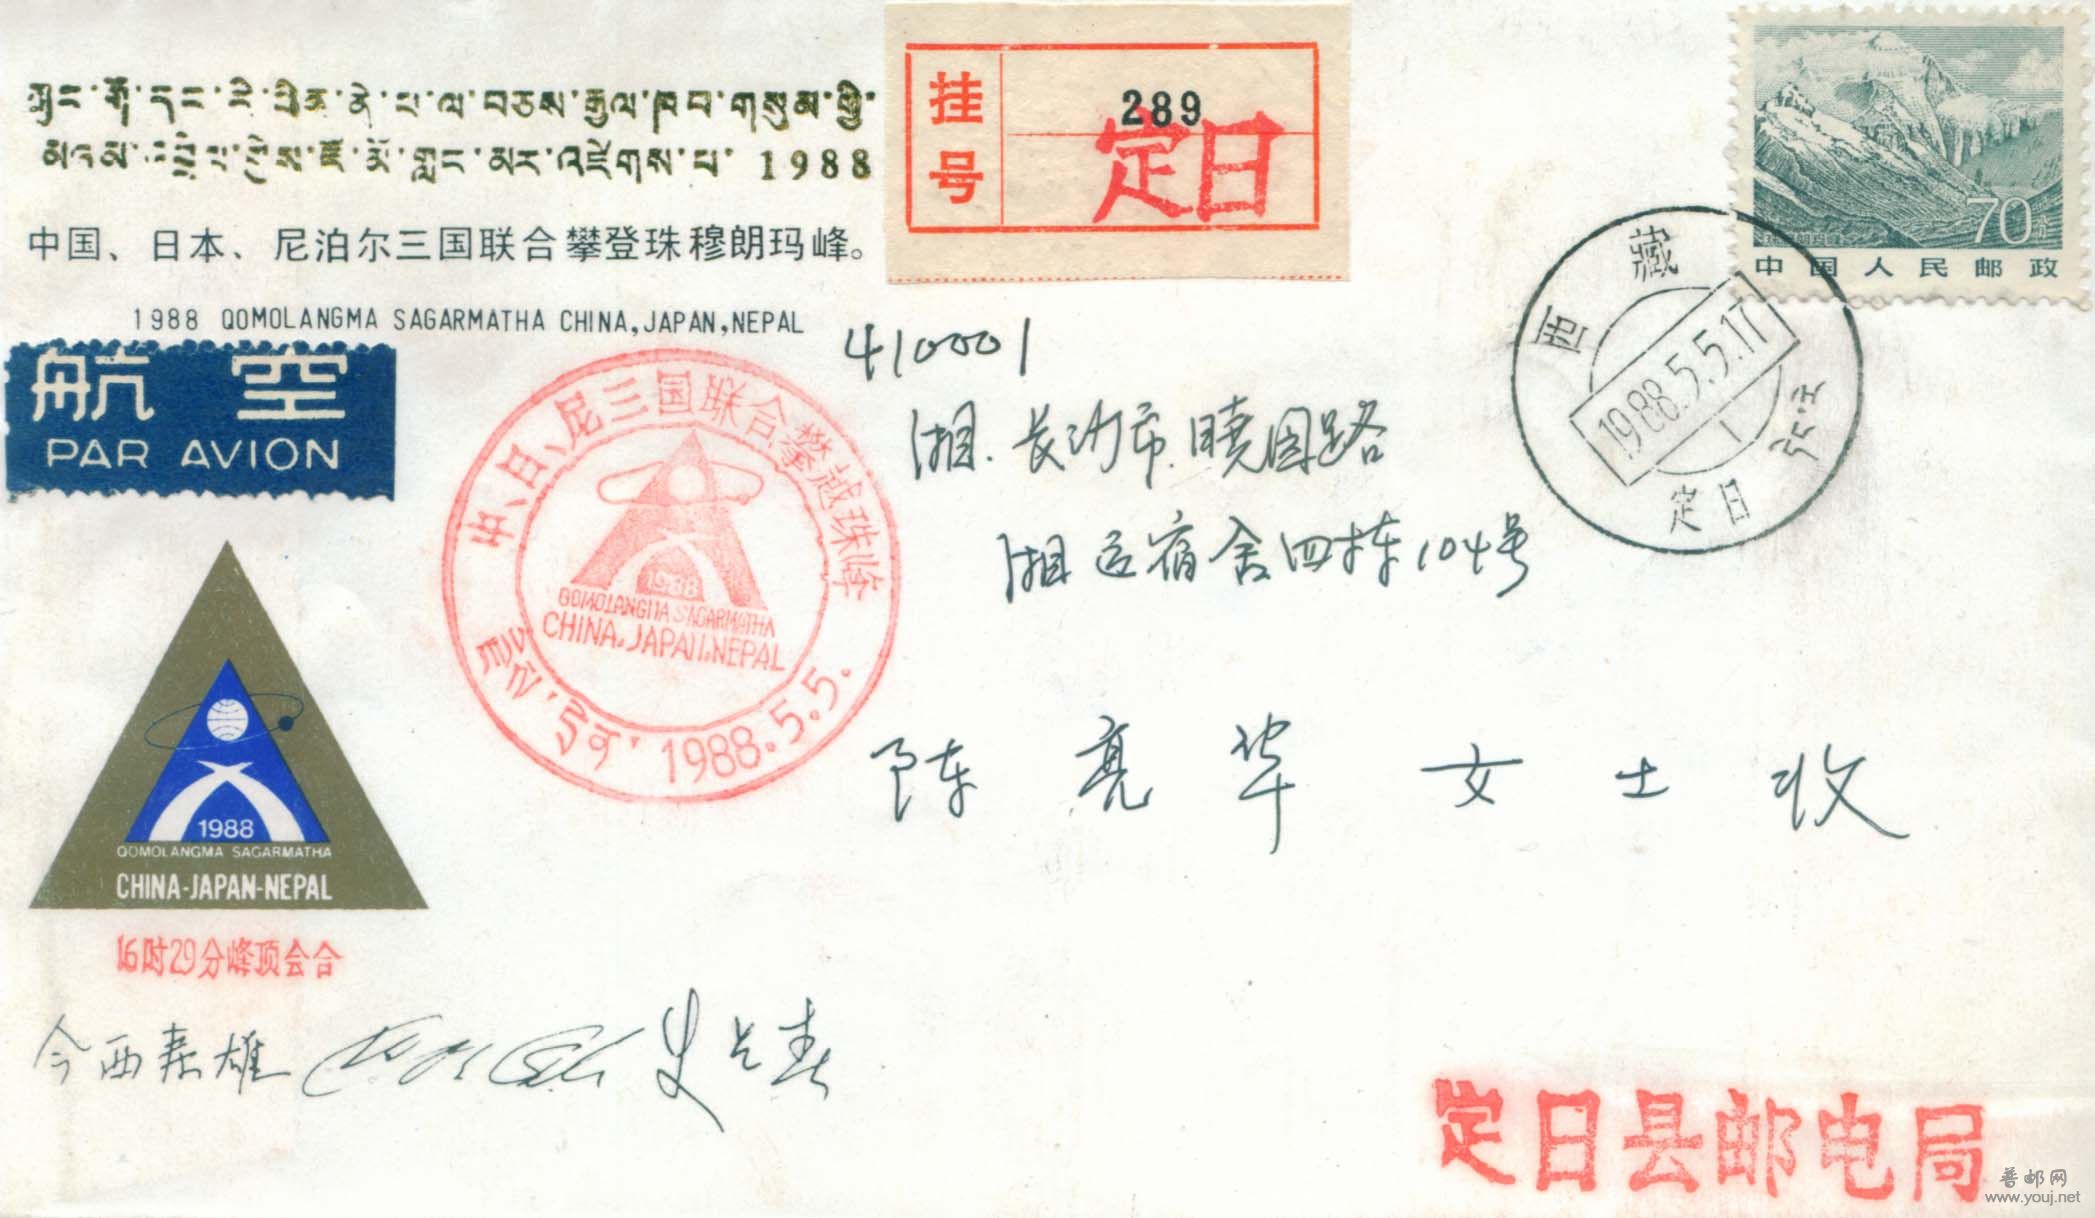 1988
中国、日本、尼泊尔三国联合攀登珠穆朗玛峰。
1988 QOMOLANGMA SAGARMATHA CHINA,JAPAN,NEPAL
挂号
289
定日
70分
中国人民邮政
西藏
1988.5.5.17
1
定日
航空
PAR AVION
中、日、尼三国联合攀越珠峰
1988
QOMOLANGMA SAGARMATHA
CHINA,JAPAN,NEPAL
1988.5.5.
410001
湘.长沙市.晓园路
湘运宿舍四栋104号
陈亮华女士收
1988
QOMOLANGMA SAGARMATHA
CHINA-JAPAN-NEPAL
16时29分峰顶会合
今西寿雄
史占春
定日县邮电局
普邮网
www.youj.net